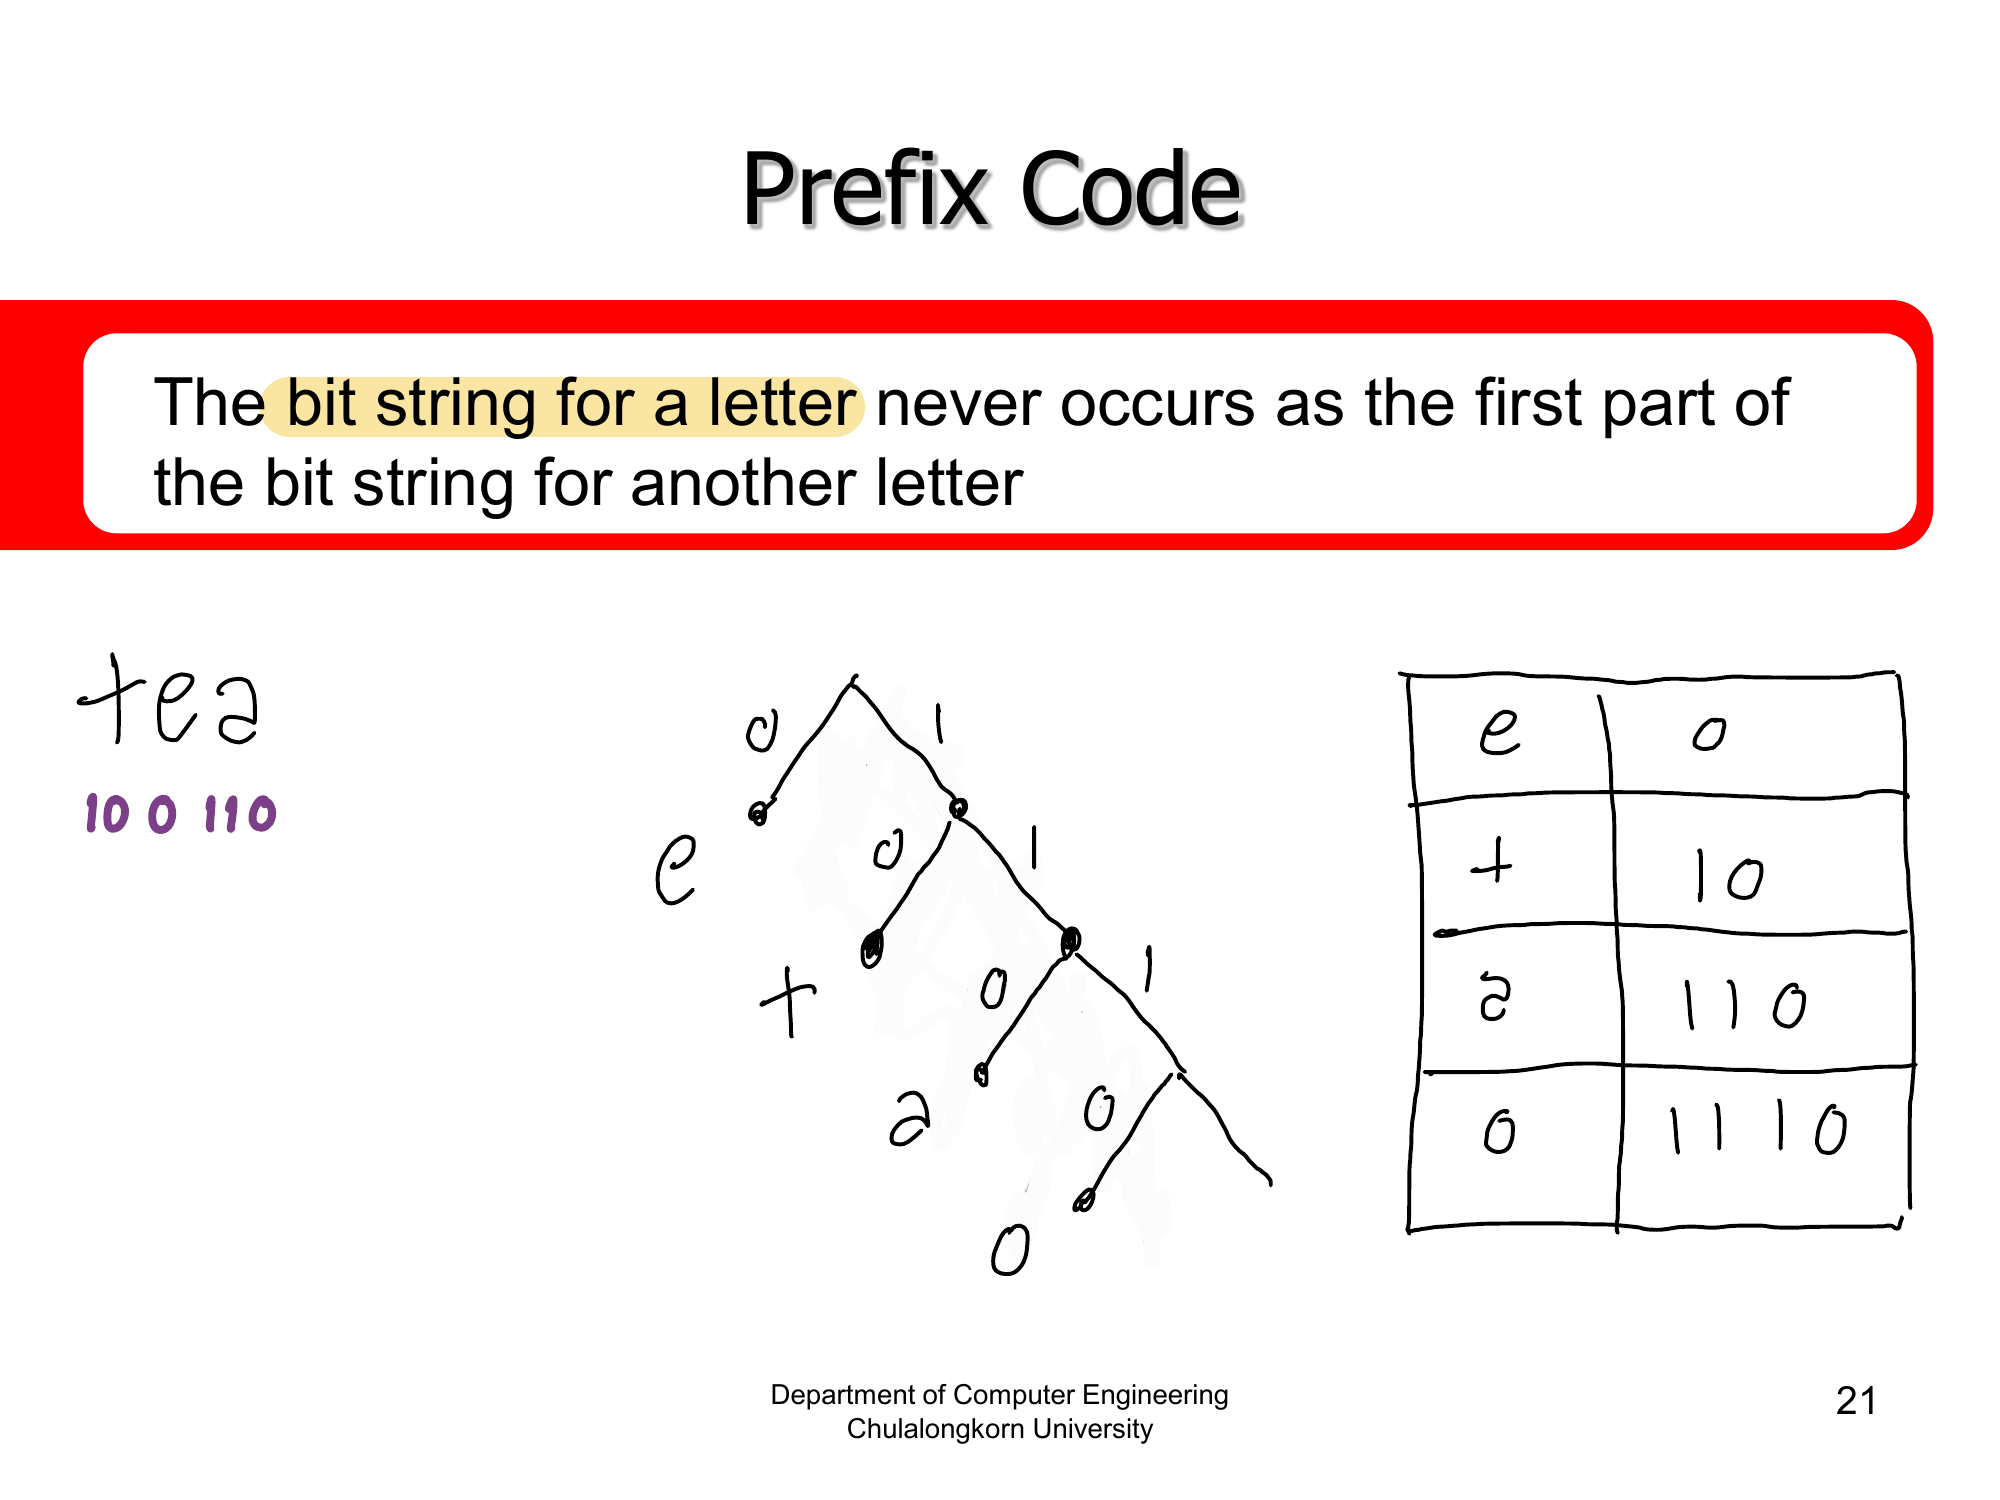 Prefix Code
The bit string for a letter never occurs as the first part of
the bit string for another letter
tea
10 0 110
0 1
e
0 1
t
0 1
a
0
o
e 0
t 10
a 110
o 1110
Department of Computer Engineering
Chulalongkorn University
21